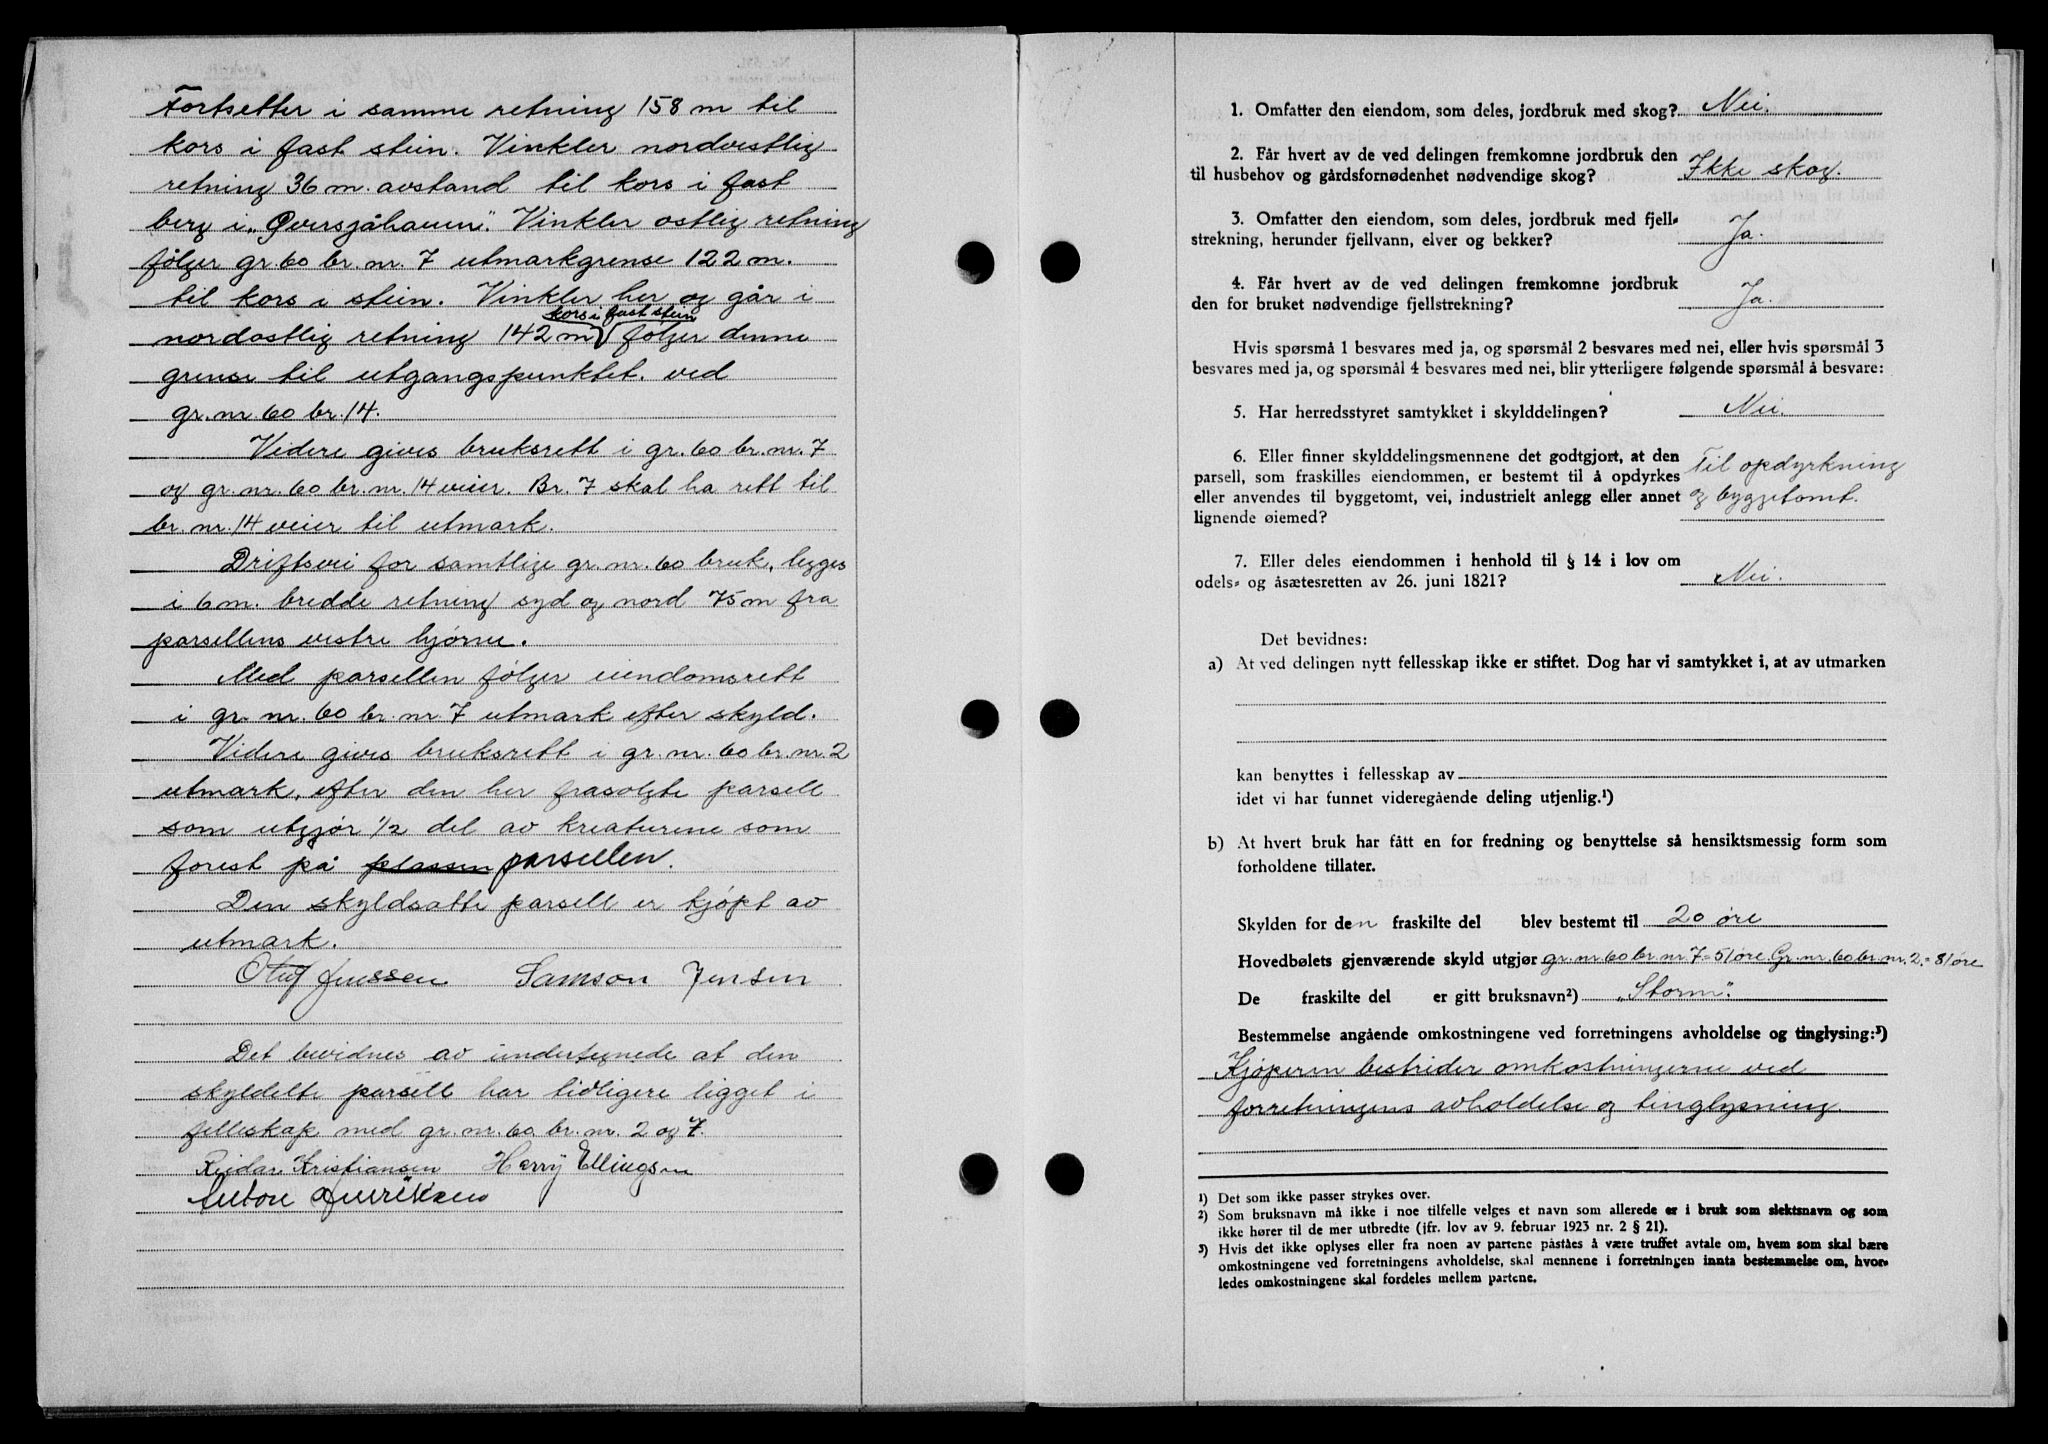 Fortsetter i samme retning 158 m til
kors i fast stein. Vinkler nordvestlig
retning 36 m. avstand til kors i fast
berg i „Øversjåhauen". Vinkler østlig retning
følger gr. 60 br. nr. 7 utmarkgrense 122 m.
til kors i stein. Vinkler her og går i
kors i fast stein
nordostlig retning 142 m følger denne
grense til utgangspunktet. ved
gr. nr. 60 br. 14.
Videre gives bruksrett i gr. 60 br. nr. 7
og gr. nr. 60 br. nr. 14 veier. Br. 7 skal ha rett til
br. nr. 14 veier til utmark.
Driftsvei for samtlige gr. nr. 60 bruk, legges
i 6 m. bredde retning syd og nord 75 m fra
parsellens vestre hjørne.
Med parsellen følger eiendomsrett
i gr. nr. 60 br. nr 7 utmark efter skyld.
Videre gives bruksrett i gr. nr. 60 br. nr. 2
utmark, efter den her frasolgte parsell
som utgjør 1/2 del av kreaturene som
forest på plassen parsellen.
Den skyldsatte parsell er kjøpt av
utmark.
Oluf Jenssen Samson Jensen
Det bevidnes av undertegnede at den
skyldelte parsell har tidligere ligget i
felleskap med gr. nr. 60 br. nr. 2 og 7.
Reidar Kristiansen Harry Ellingsen
Anton Henriksen
1. Omfatter den eiendom, som deles, jordbruk med skog? Nei.
2. Får hvert av de ved delingen fremkomne jordbruk den
til husbehov og gårdsfornødenhet nødvendige skog? Ikke skog.
3. Omfatter den eiendom, som deles, jordbruk med fjell-
strekning, herunder fjellvann, elver og bekker? Ja.
4. Får hvert av de ved delingen fremkomne jordbruk
den for bruket nødvendige fjellstrekning? Ja.
Hvis spørsmå 1 besvares med ja, og spørsmål 2 besvares med nei, eller hvis spørsmål 3
besvares med ja, og spørsmål 4 besvares med nei, blir ytterligere følgende spørsmål å besvare:
5. Har herredsstyret samtykket i skylddelingen? Nei.
6. Eller finner skylddelingsmennene det godtgjort, at den
parsell, som fraskilles eiendommen, er bestemt til å opdyrkes Til opdyrkning
eller anvendes til byggetomt, vei, industrielt anlegg eller annet og byggetomt.
lignende øiemed?
7. Eller deles eiendommen i henhold til § 14 i lov om
odels- og åsætesretten av 26. juni 1821? Nei.
Det bevidnes:
a) At ved delingen nytt fellesskap ikke er stiftet. Dog har vi samtykket i, at av utmarken
kan benyttes i fellesskap av
idet vi har funnet videregående deling utjenlig.¹)
b) At hvert bruk har fått en for fredning og benyttelse så hensiktsmessig form som
forholdene tillater.
Skylden for den fraskilte del blev bestemt til 20 øre
Hovedbølets gjenværende skyld utgjør gr. nr. 60 br. nr. 7 = 51 øre. Gr. nr. 60 br. nr. 2. = 81 øre
De fraskilte del er gitt bruksnavn²) „Storm".
Bestemmelse angående omkostningene ved forretningens avholdelse og tinglysing:³)
Kjøperen bestrider omkostningerne ved
forretningens avholdelse og tinglysning.
¹) Det som ikke passer strykes over.
²) Som bruksnavn må ikke i noe tilfelle velges et navn som allerede er i bruk som slektsnavn og som
ikke hører til de mer utbredte (jfr. lov av 9. februar 1923 nr. 2 § 21).
³) Hvis det ikke oplyses eller fra noen av partene påståes å være truffet avtale om, hvem som skal bære
omkostningene ved forretningens avholdelse, skal mennene i forretningen innta bestemmelse om, hvor-
ledes omkostningene skal fordeles mellem partene.